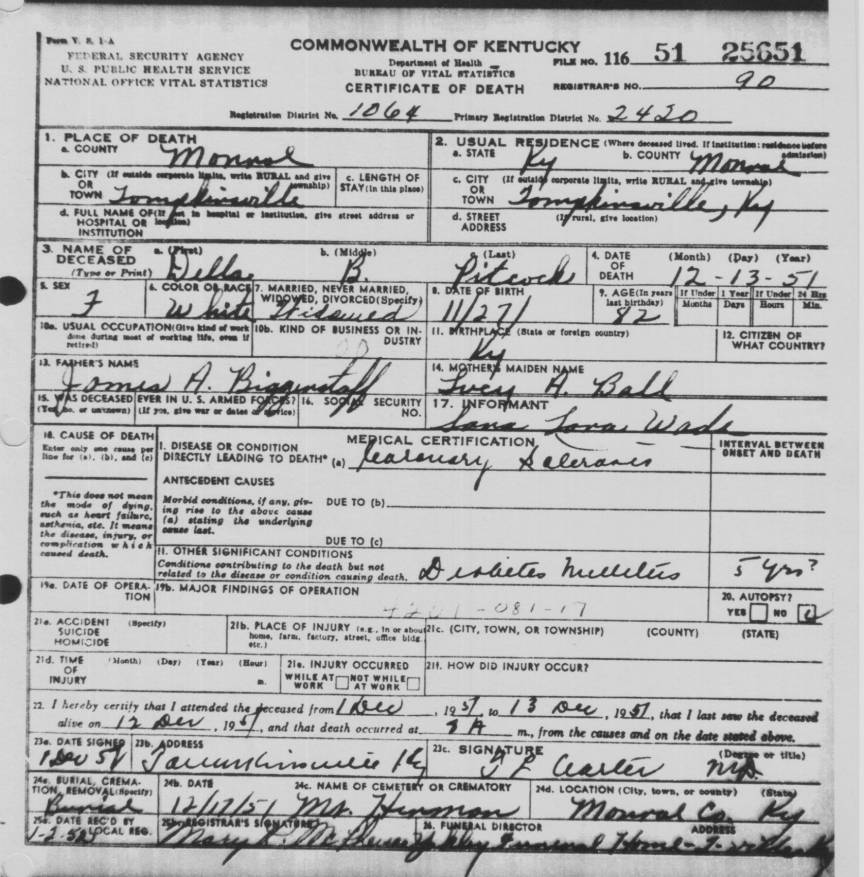 Form V. S. 1-A
FEDERAL SECURITY AGENCY
U. S. PUBLIC HEALTH SERVICE
NATIONAL OFFICE VITAL STATISTICS
COMMONWEALTH OF KENTUCKY
Department of Health
BUREAU OF VITAL STATISTICS
CERTIFICATE OF DEATH
FILE NO. 116 51 25651
REGISTRAR'S NO. 90
Registration District No. 1064 Primary Registration District No. 2420
1. PLACE OF DEATH
a. COUNTY Monroe
2. USUAL RESIDENCE (Where deceased lived. If institution: residence before admission)
a. STATE Ky b. COUNTY Monroe
b. CITY (If outside corporate limits, write RURAL and give township) OR TOWN Tompkinsville
c. LENGTH OF STAY (in this place)
c. CITY (If outside corporate limits, write RURAL and give township) OR TOWN Tompkinsville, Ky
d. FULL NAME OF (If not in hospital or institution, give street address or location) HOSPITAL OR INSTITUTION
d. STREET ADDRESS (If rural, give location)
3. NAME OF DECEASED (Type or Print)
a. (First) Della b. (Middle) B. c. (Last) Pitcock
4. DATE OF DEATH (Month) (Day) (Year) 12-13-51
5. SEX F
6. COLOR OR RACE White
7. MARRIED, NEVER MARRIED, WIDOWED, DIVORCED (Specify) Widowed
8. DATE OF BIRTH 11/27/
9. AGE (In years last birthday) 82
If Under 1 Year Months Days
If Under 24 Hrs Hours Min.
10a. USUAL OCCUPATION (Give kind of work done during most of working life, even if retired)
10b. KIND OF BUSINESS OR INDUSTRY
11. BIRTHPLACE (State or foreign country) Ky
12. CITIZEN OF WHAT COUNTRY?
13. FATHER'S NAME James A. Biggerstaff
14. MOTHER'S MAIDEN NAME Lucy A. Ball
15. WAS DECEASED EVER IN U. S. ARMED FORCES? (Yes, no, or unknown) (If yes, give war or dates of service)
16. SOCIAL SECURITY NO.
17. INFORMANT Wade
18. CAUSE OF DEATH
Enter only one cause per line for (a), (b), and (c)
MEDICAL CERTIFICATION
INTERVAL BETWEEN ONSET AND DEATH
I. DISEASE OR CONDITION DIRECTLY LEADING TO DEATH* (a) Coronary Sclerosis
*This does not mean the mode of dying, such as heart failure, asthenia, etc. It means the disease, injury, or complication which caused death.
ANTECEDENT CAUSES
Morbid conditions, if any, giving rise to the above cause (a) stating the underlying cause last.
DUE TO (b)
DUE TO (c)
II. OTHER SIGNIFICANT CONDITIONS
Conditions contributing to the death but not related to the disease or condition causing death. Diabetes Mellitus 5 yrs?
19a. DATE OF OPERATION
19b. MAJOR FINDINGS OF OPERATION
4201-081-17
20. AUTOPSY?
YES NO
21a. ACCIDENT SUICIDE HOMICIDE (Specify)
21b. PLACE OF INJURY (e.g., in or about home, farm, factory, street, office bldg. etc.)
21c. (CITY, TOWN, OR TOWNSHIP) (COUNTY) (STATE)
21d. TIME OF INJURY (Month) (Day) (Year) (Hour) m.
21e. INJURY OCCURRED
WHILE AT WORK NOT WHILE AT WORK
21f. HOW DID INJURY OCCUR?
22. I hereby certify that I attended the deceased from 1 Dec, 1951 to 13 Dec, 1951, that I last saw the deceased
alive on 12 Dec, 1951, and that death occurred at 8 A m., from the causes and on the date stated above.
23a. DATE SIGNED Dec 51
23b. ADDRESS Tompkinsville Ky
23c. SIGNATURE Carter MD (Degree or title)
24a. BURIAL, CREMATION, REMOVAL (Specify) Burial
24b. DATE 12/17/51
24c. NAME OF CEMETERY OR CREMATORY Mt. Hinman
24d. LOCATION (City, town, or county) (State) Monroe Co. Ky
25a. DATE REC'D BY LOCAL REG. 1-2-52
25b. REGISTRAR'S SIGNATURE Mary
26. FUNERAL DIRECTOR ADDRESS Funeral Home